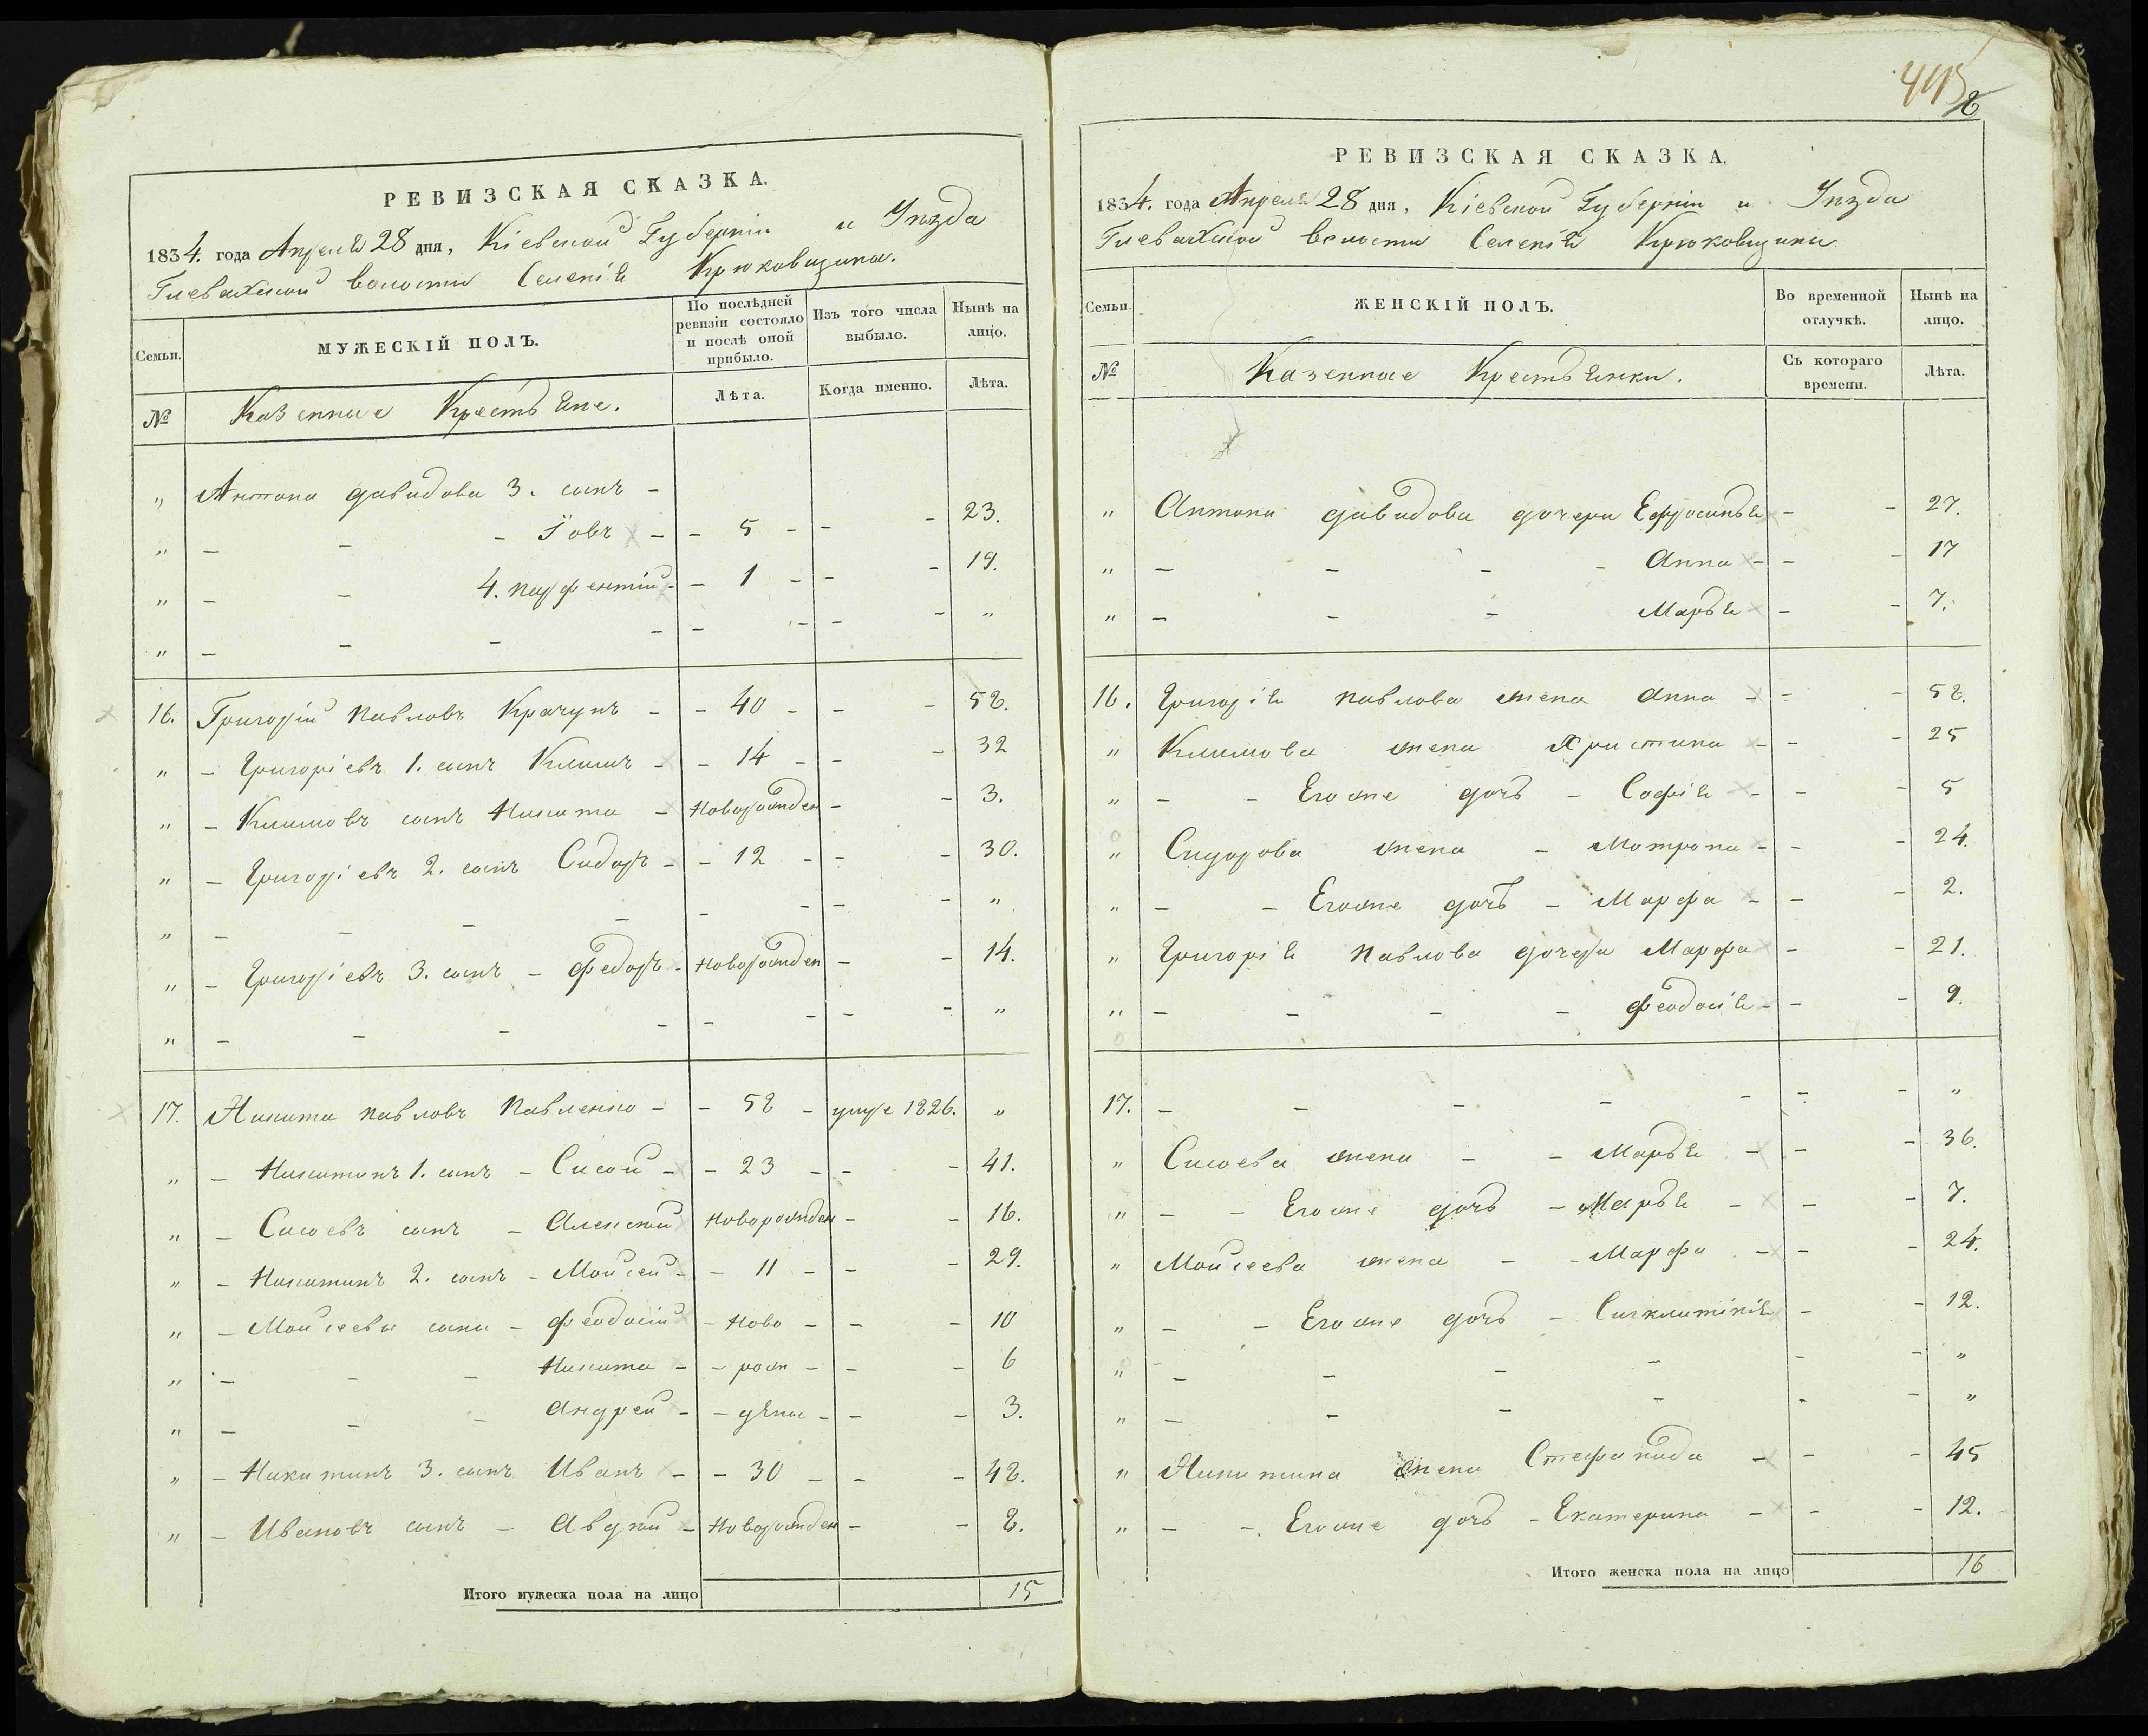 РЕВИЗСКАЯ СКАЗКА.
1834. года Апреля 28 дня, Кіевской Губерніи и Уезда
Глевахской волости Селенія Крюковщины.
Семьи. МУЖЕСКІЙ ПОЛЪ. По послѣдней ревизіи состояло и послѣ оной прибыло. Изъ того числа выбыло. Нынѣ на лицо.
№ Казенные Крестьяне. Лѣта. Когда именно. Лѣта.
„ Антона давидова 3. сынъ -
„ - - - Іовъ - - 5 - - - 23.
„ - - 4. парфентій - - 1 - - - 19.
„ - - - - - - - - „
16. Григорій павловъ Крачунъ - - 40 - - - 58.
„ - Григоріевъ 1. сынъ Климъ - - 14 - - - 32
„ - Климовъ сынъ Никита - Новорожден - - 3.
„ - Григоріевъ 2. сынъ Сидоръ - - 12 - - - 30.
„ - - - - - - - - „
„ - Григоріевъ 3. сынъ - федоръ - Новорожден - - 14.
„ - - - - - - - - „
17. Никита павловъ Павленко - - 58 - умре 1826. „
„ - Никитинъ 1. сынъ - Сисой - - 23 - - - 41.
„ - Сисоевъ сынъ - Алексей Новорожден - - 16.
„ - Никитинъ 2. сынъ - Мойсей - - 11 - - - 29.
„ - Мойсеевы сыны - феодосій - Ново - - - 10
„ - - - Никита - - рож - - - 6
„ - - - Андрей - - дены - - - 3.
„ - Никитинъ 3. сынъ Иванъ - - 30 - - - 48.
„ - Ивановъ сынъ - Авдей - Новорожден - - 8.
Итого мужеска пола на лицо 15
445
8
РЕВИЗСКАЯ СКАЗКА.
1834. года Апреля 28 дня, Кіевской Губерніи и Уезда
Глевахской волости Селенія Крюковщины
Семьи. ЖЕНСКІЙ ПОЛЪ. Во временной отлучкѣ. Нынѣ на лицо.
№ Казенные Крестьянки. Съ котораго времени. Лѣта.
„ Антона давидова дочери Ефросинья - - 27.
„ - - - - Анна - - - 17
„ - - - Марья - - 7.
16. Григорія павлова жена Анна - - - 58.
„ Климова жена Христина - - - 25
„ - - Его же дочь - Софія - - - 5
„ Сидорова жена - Мотрона - - - 24.
„ - - Его же дочь - Марфа - - - 2.
„ Григорія павлова дочери Марфа - - 21.
„ - - - - феодосія - - - 9.
17. - - - - - - - „
„ Сисоева жена - - Марья - - - 36.
„ - - Его же дочь - Марья - - - 7.
„ Мойсеева жена - - Марфа - - - 24.
„ - - Его же дочь - Сигклитікія - - 12.
„ - - - - - - - „
„ - - - - - - „
„ Никитина жена Стефанида - - - 45
„ - - Его же дочь - Екатерина - - - 12.
Итого женска пола на лицо 16